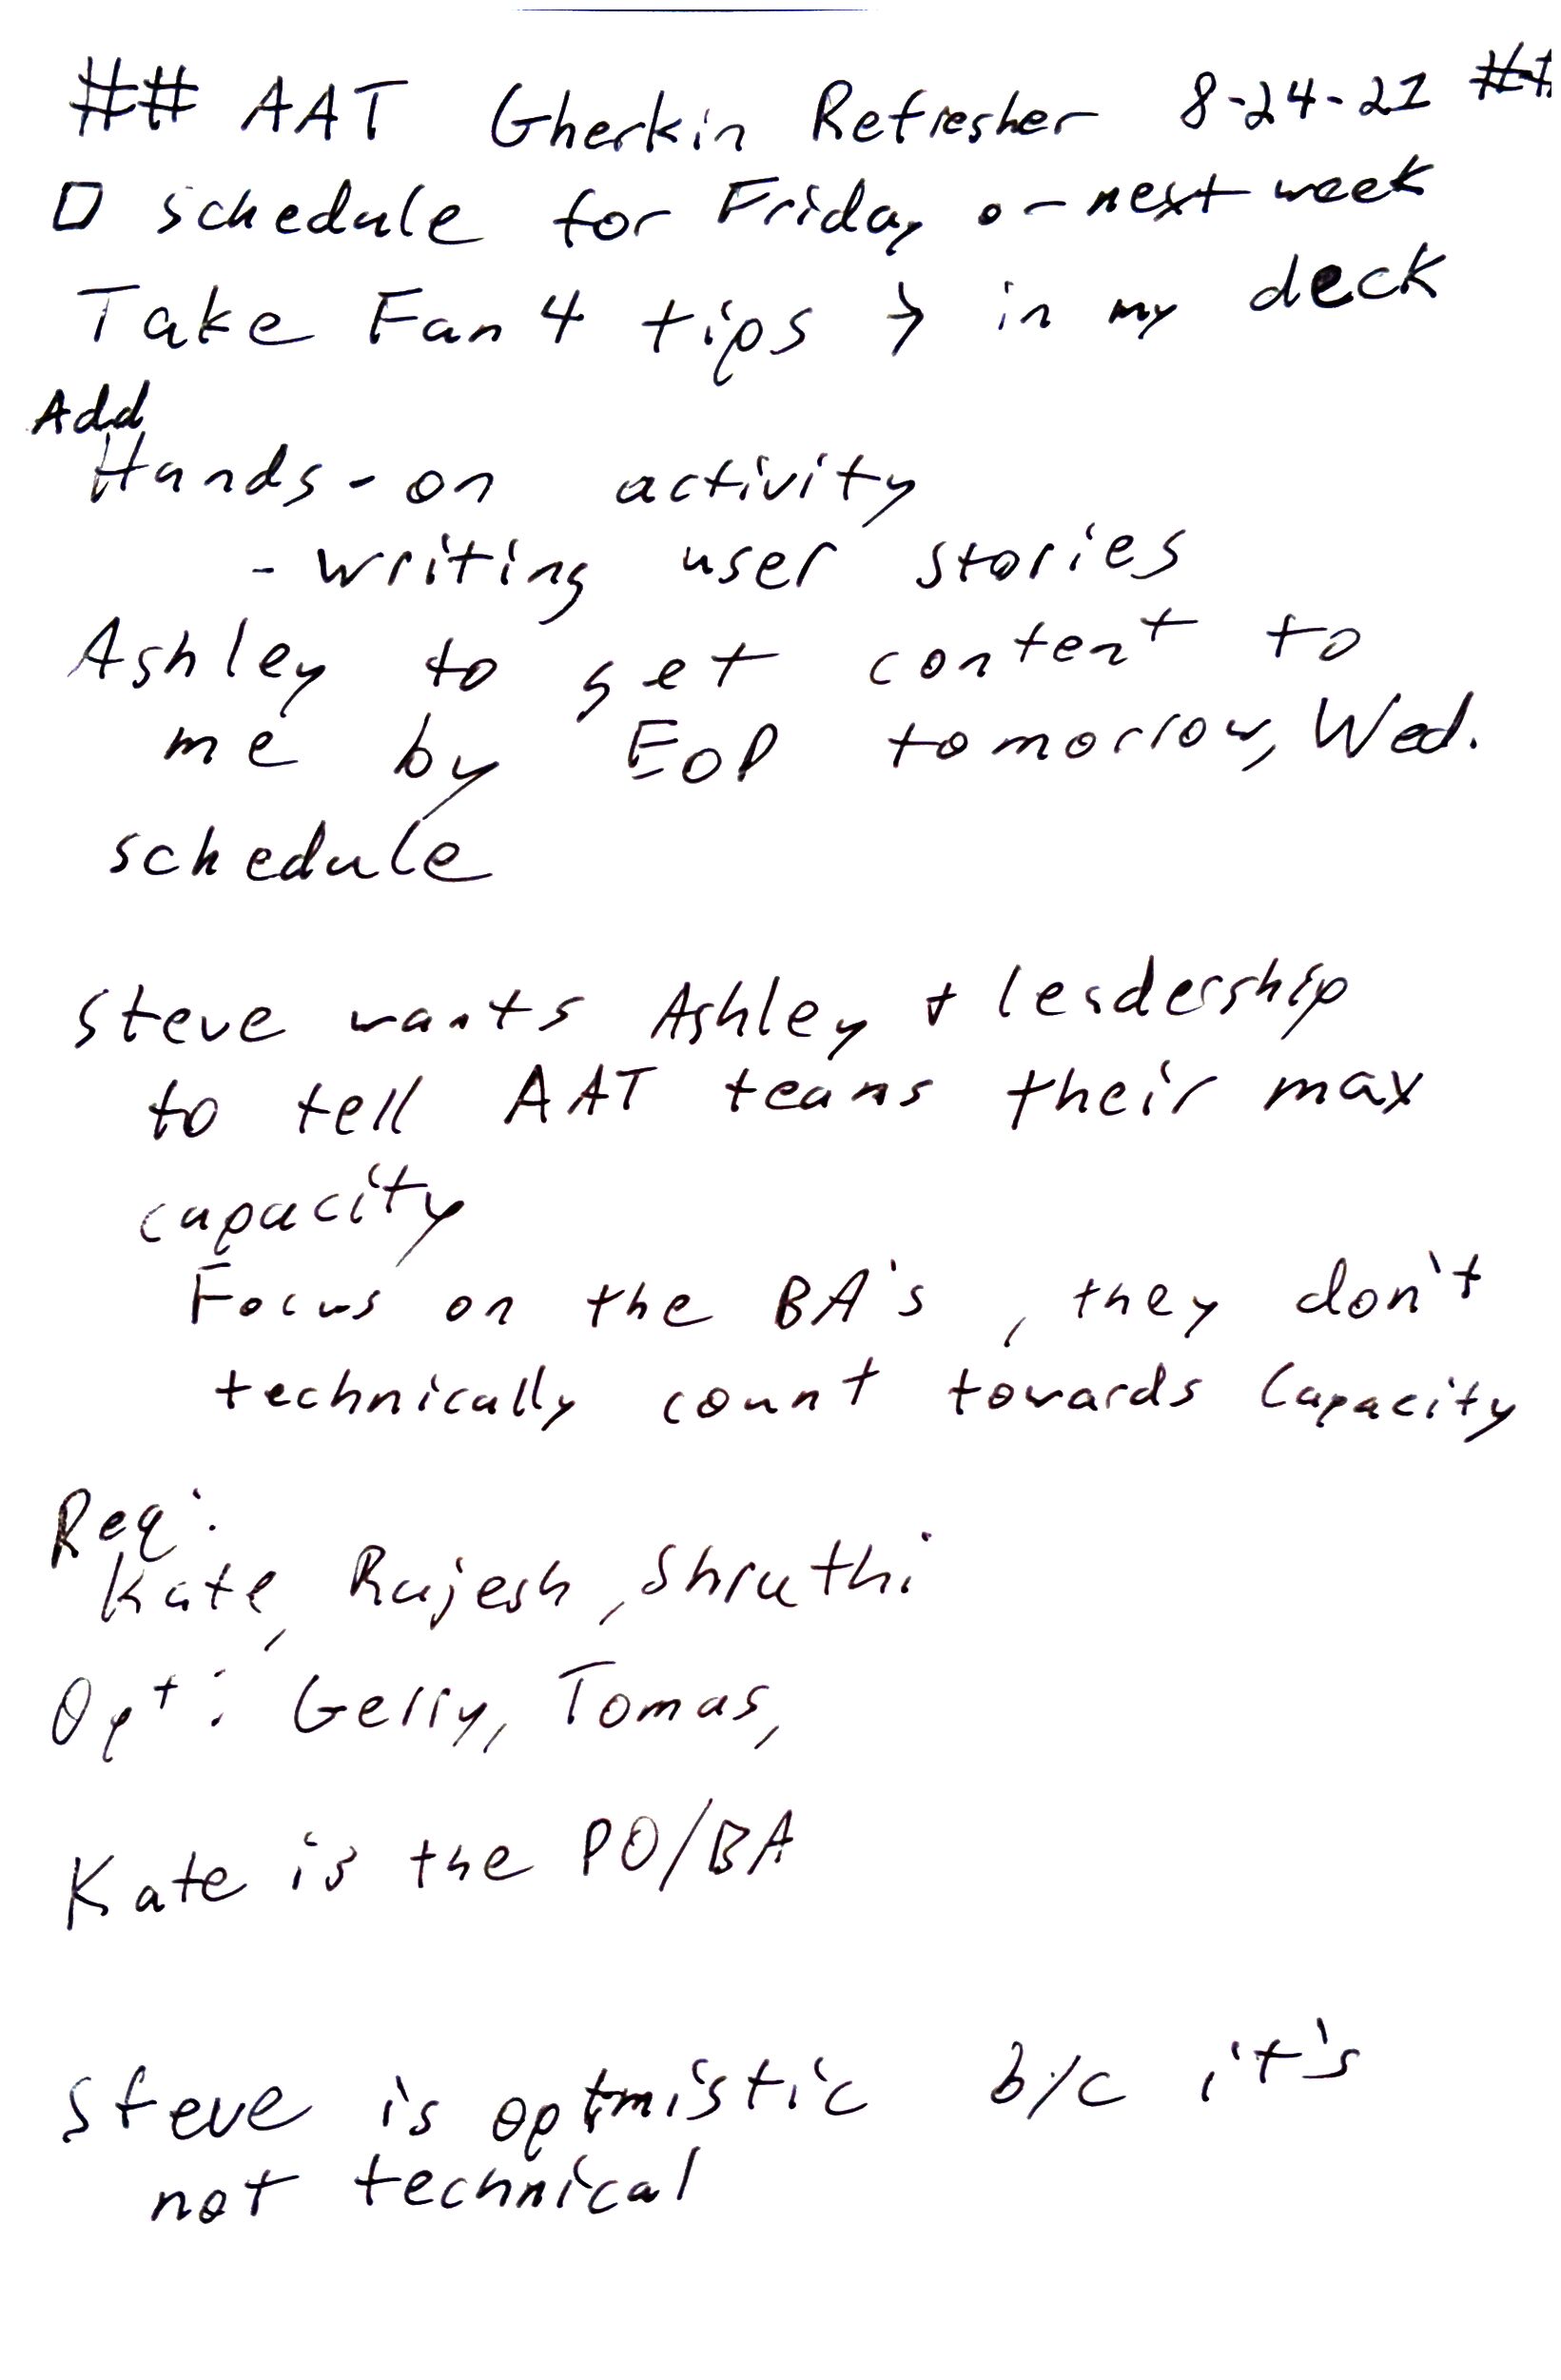 ## AAT Gherkin Refresher 8-24-21 ##
□ schedule for Friday or next week
Take Fan 4 tips → in my deck
Add
Hands-on activity
- writing user stories
Ashley to get content to
me by EOD tomorrow, Wed.
schedule
Steve wants Ashley + leadership
to tell AAT teams their max
capacity
Focus on the BA's, they don't
technically count towards capacity
Req:
Kate, Rajesh, Shruthi
Opt: Gerry, Tomas,
Kate is the PO/BA
Steve is optmistic b/c it's
not technical